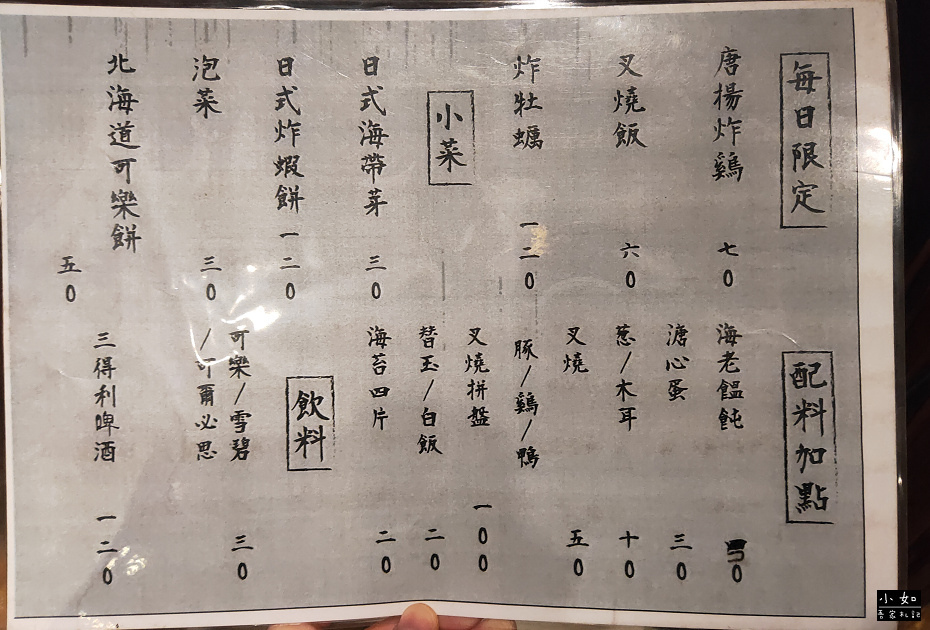 每日限定
唐楊炸鷄 七0
叉燒飯 六0
炸牡蠣 一二0
小菜
日式海帶芽 三0
日式炸蝦餅 一二0
泡菜 三0
北海道可樂餅 五0
配料加點
海老餛飩 0
溏心蛋 三0
葱/木耳 十0
叉燒 五0
豚/鷄/鴨
叉燒拼盤 一00
替玉/白飯 二0
海苔四片 二0
飲料
可樂/雪碧
/可爾必思 三0
三得利啤酒 一二0
小如
吾家札記